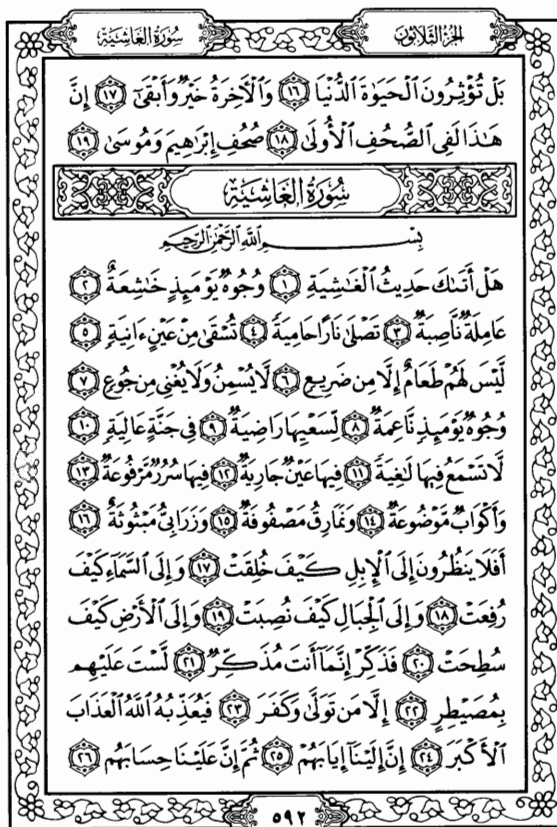 سُورَةُ الغَاشِيَةِ
الجُزْءُ الثَّلَاثُونَ
بَلْ تُؤْثِرُونَ ٱلْحَيَوٰةَ ٱلدُّنْيَا ١٦ وَٱلْأَخِرَةُ خَيْرٌ وَأَبْقَىٰٓ ١٧ إِنَّ
هَٰذَا لَفِى ٱلصُّحُفِ ٱلْأُولَىٰ ١٨ صُحُفِ إِبْرَٰهِيمَ وَمُوسَىٰ ١٩
سُورَةُ الغَاشِيَةِ
بِسْمِ اللَّهِ الرَّحْمَٰنِ الرَّحِيمِ
هَلْ أَتَىٰكَ حَدِيثُ ٱلْغَٰشِيَةِ ١ وُجُوهٌ يَوْمَئِذٍ خَٰشِعَةٌ ٢
عَامِلَةٌ نَّاصِبَةٌ ٣ تَصْلَىٰ نَارًا حَامِيَةً ٤ تُسْقَىٰ مِنْ عَيْنٍ ءَانِيَةٍ ٥
لَّيْسَ لَهُمْ طَعَامٌ إِلَّا مِن ضَرِيعٍ ٦ لَّا يُسْمِنُ وَلَا يُغْنِى مِن جُوعٍ ٧
وُجُوهٌ يَوْمَئِذٍ نَّاعِمَةٌ ٨ لِّسَعْيِهَا رَاضِيَةٌ ٩ فِى جَنَّةٍ عَالِيَةٍ ١٠
لَّا تَسْمَعُ فِيهَا لَٰغِيَةً ١١ فِيهَا عَيْنٌ جَارِيَةٌ ١٢ فِيهَا سُرُرٌ مَّرْفُوعَةٌ ١٣
وَأَكْوَابٌ مَّوْضُوعَةٌ ١٤ وَنَمَارِقُ مَصْفُوفَةٌ ١٥ وَزَرَابِىُّ مَبْثُوثَةٌ ١٦
أَفَلَا يَنظُرُونَ إِلَى ٱلْإِبِلِ كَيْفَ خُلِقَتْ ١٧ وَإِلَى ٱلسَّمَآءِ كَيْفَ
رُفِعَتْ ١٨ وَإِلَى ٱلْجِبَالِ كَيْفَ نُصِبَتْ ١٩ وَإِلَى ٱلْأَرْضِ كَيْفَ
سُطِحَتْ ٢٠ فَذَكِّرْ إِنَّمَآ أَنتَ مُذَكِّرٌ ٢١ لَّسْتَ عَلَيْهِم
بِمُصَيْطِرٍ ٢٢ إِلَّا مَن تَوَلَّىٰ وَكَفَرَ ٢٣ فَيُعَذِّبُهُ ٱللَّهُ ٱلْعَذَابَ
ٱلْأَكْبَرَ ٢٤ إِنَّ إِلَيْنَآ إِيَابَهُمْ ٢٥ ثُمَّ إِنَّ عَلَيْنَا حِسَابَهُم ٢٦
٥٩٢